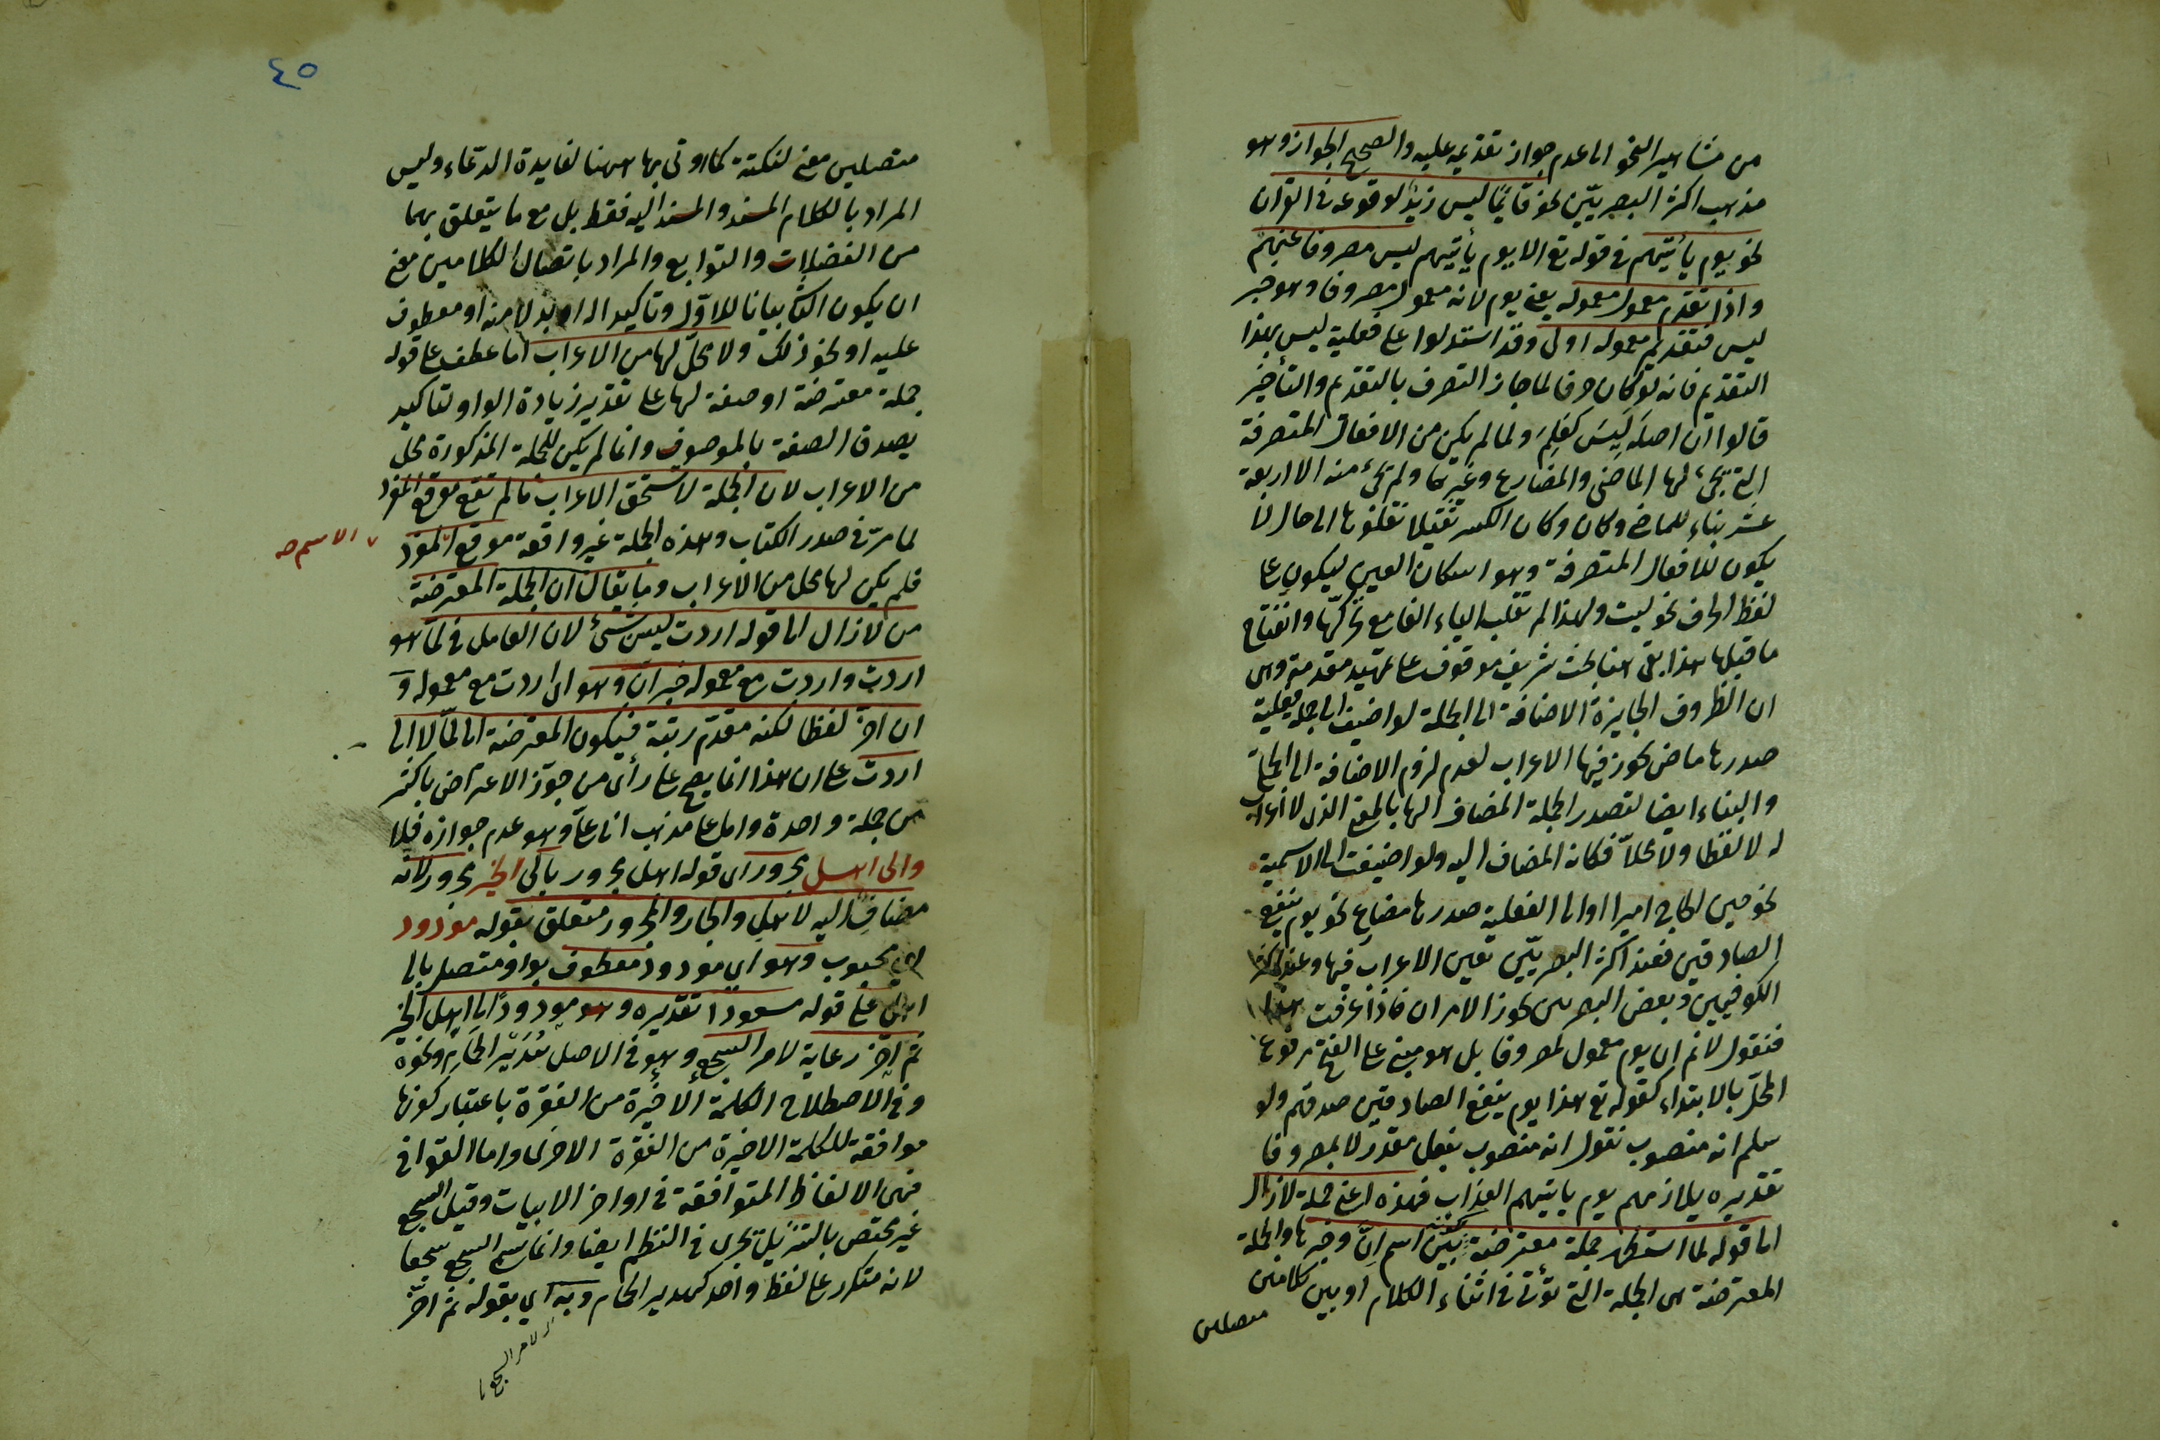 من مشاهير النحو الى عدم جواز تقديمه عليه والصحيح الجواز وهو
مذهب اكثر البصريين نحو قائما ليس زيد لوقوعه في القران
نحو يوم يأتيهم في قوله تع الا يوم يأتيهم ليس مصروفا عنهم
واذا تقدم معمول معموله يعني يوم لانه معمول مصروفا وهو خبر
ليس فتقديم معموله اولى وقد استدلوا على فعلية ليس بهذا
التقديم فانه لو كان حرفا لما جاز التصرف بالتقديم والتأخير
قالوا ان اصله ليس كعلم ولما لم يكن من الافعال المتصرفة
التي تجئ لها الماضي والمضارع وغيرهما ولم تجئ منه الا اربعة
عشر بناء للماضي وكان وكان الكسر ثقيلا نقلوها الى حال لا
يكون للافعال المتصرفة وهو اسكان العين ليكون على
لفظ الحرف نحو ليت ولهذا لم تقلب الياء الفا مع تحركها وانفتاح
ما قبلها هذا بقي هنا بحث شريف موقوف على تمهيد مقدمة وهي
ان الظروف الجايزة الاضافة الى الجملة لو اضيف الى جملة فعلية
صدرها ماض يجوز فيها الاعراب لعدم لزوم الاضافة الى الجملة
والبناء ايضا لتصدر الجملة المضاف اليها بالمبني الذي لا اعراب
له لا لفظا ولا محلا فكانه المضاف اليه ولو اضيفت الى الاسمية
نحو حين الحاج اميرا او الى الفعلية صدرها مضارع نحو يوم ينفع
الصادقين فعند اكثر البصريين تعين الاعراب فيها وعند اكثر
الكوفيين وبعض البصريين يجوز الامران فاذا عرفت هذا
فنقول لا نم ان يوم معمول لمصروفا بل هو مبني على الفتح مرفوع
المحل بالابتداء كقوله تع هذا يوم ينفع الصادقين صدقهم ولو
سلم انه منصوب نقول انه منصوب بفعل مقدر لا بمصروفا
تقديره يلازمهم يوم يأتيهم العذاب فهذه اعني جملة لا زال
اما قوله لما استظهر جملة معترضة بين اسم ان وخبرها والجملة
المعترضة هي الجملة التي تؤتى في اثناء الكلام او بين كلامين
متصلين
٤٥
متصلين معنى لنكتة كما اوتي بها ههنا لفايدة الدعاء وليس
المراد بالكلام المسند والمسند اليه فقط بل مع ما يتعلق بهما
من الفضلات والتوابع والمراد باتصال الكلامين معنى
ان يكون الثاني بيانا للاول وتاكيدا له او بدلا منه او معطوف
عليه او نحو ذلك ولا محل لها من الاعراب اما عطف على قوله
جملة معترضة او صفة لها على تقدير زيادة الواو لتاكيد
يصدق الصفة بالموصوف وانما لم يكن للجملة المذكورة محل
من الاعراب لان الجملة لا تستحق الاعراب ما لم تقع موقع المفرد
لما مر في صدر الكتاب وهذه الجملة غير واقعة موقع المفرد
الاسم صح
فلم يكن لها محل من الاعراب وما يقال ان الجملة المعترضة
من لا زال اما قوله اردت ليس بشئ لان العامل في لما هو
اردت واردت مع معموله خبر ان وهو اي اردت مع معموله و
ان اخر لفظا لكنه مقدم رتبة فيكون المعترضة اما لما لا الى
اردت على ان هذا انما يصح على رأي من جوز الاعتراض باكثر
من جملة واحدة واما على مذهب ابي علي وهو عدم جوازه فلا
والى اهل مجرور اي قوله اهل مجرور بالى الخير مجرور لانه
مضاف اليه لاهل والجار والمجرور متعلق بقوله مودود
اي محبوب وهو اي مودود معطوف بواو متصل بالى
اهل على قوله مسعودا تقديره وهو مودودا الى اهل الخير
ثم اخر رعاية لامر السجع وهو في الاصل هدير الحمام ونحوه
وفي الاصطلاح الكلمة الاخيرة من الفقرة باعتبار كونها
موافقة للكلمة الاخيرة من الفقرة الاخرى واما القوافي
فهي الالفاظ المتوافقة في اواخر الابيات وقيل السجع
غير مختص بالنثر بل تجري في النظم ايضا وانما سمي السجع سجعا
لانه متكرر على لفظ واحد كهدير الحمام وبه اي بقوله ثم اخر
لامر السجع